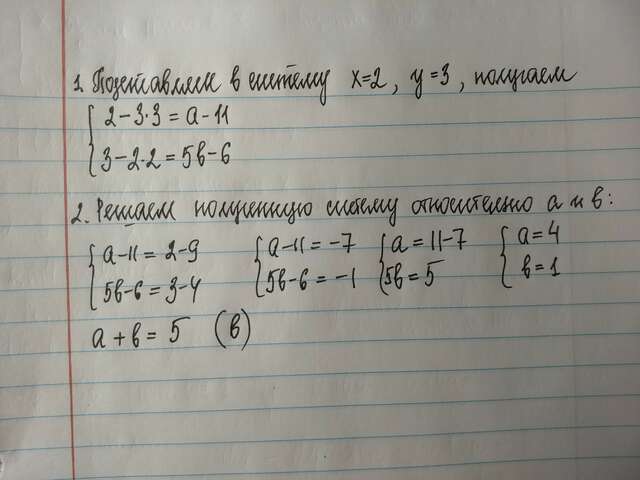 1. Подставляем в систему x=2, y=3, получаем
{ 2-3·3=a-11
{ 3-2·2=5в-6
2. Решаем полученную систему относительно а и в:
{ a-11=2-9 { a-11=-7 { a=11-7 { a=4
{ 5в-6=3-4 { 5в-6=-1 { 5в=5 { в=1
a+в=5 (в)